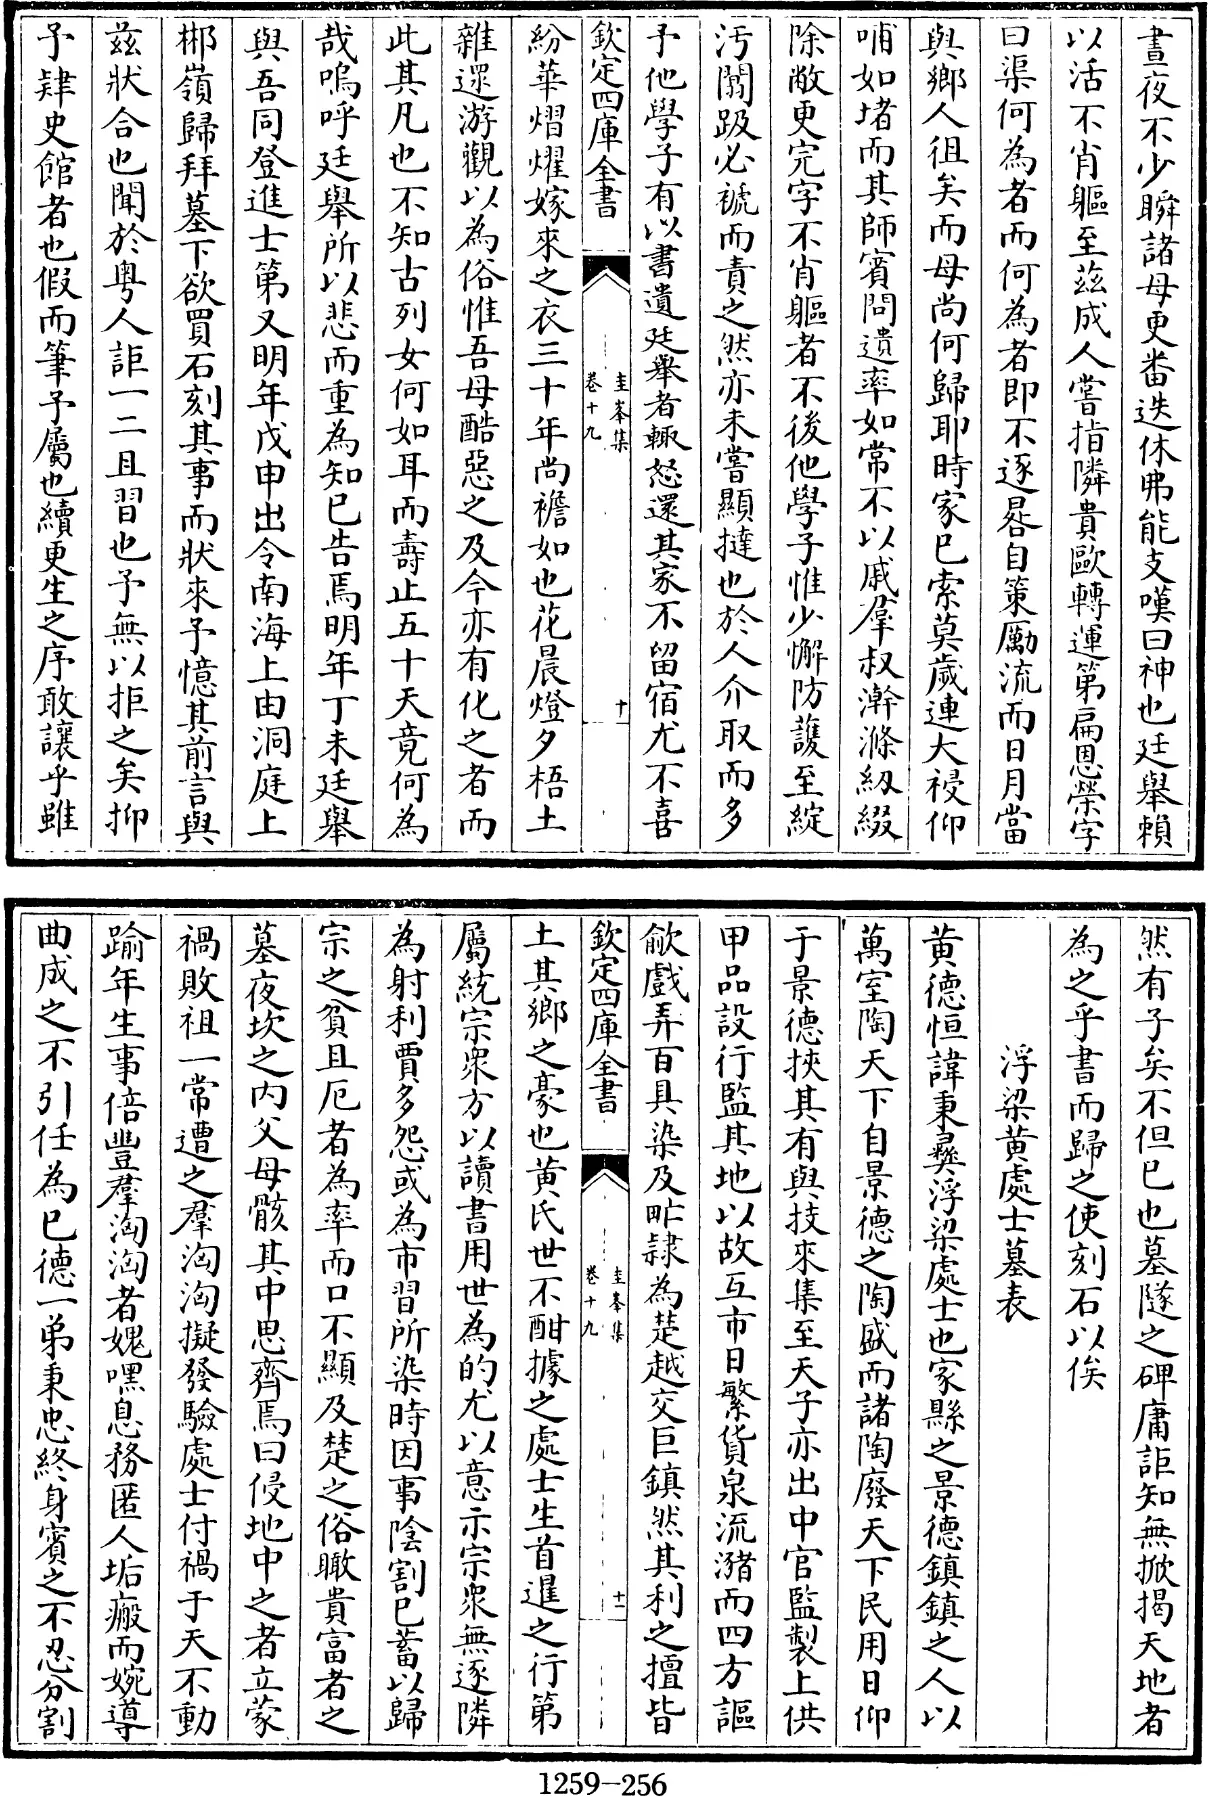 晝夜不少瞬諸母更番迭休弗能支嘆曰神也廷舉賴
以活不肖軀至茲成人嘗指隣貴歐轉運第扁恩榮字
曰渠何為者而何為者即不逐晷自策厲流而日月當
與鄉人徂矣而母尚何歸耶時家已索莫歲連大祲仰
哺如堵而其師賓問遺率如常不以戚羣叔澣滌紉綴
除敝更完字不肖軀者不後他學子惟少懈防護至綻
汚闒趿必褫而責之然亦未嘗顯撻也於人介取而多
予他學子有以書遺廷舉者輙怒還其家不留宿尤不喜
欽定四庫全書
圭峯集
卷十九
十
紛華熠燿嫁來之衣三十年尚襜如也花晨燈夕梧土
雜還游觀以為俗惟吾母酷惡之及今亦有化之者而
此其凡也不知古列女何如耳而壽止五十天竟何為
哉嗚呼廷舉所以悲而重為知已告焉明年丁未廷舉
與吾同登進士第又明年戊申出令南海上由洞庭上
郴嶺歸拜墓下欲買石刻其事而狀來予憶其前言與
茲狀合也聞於粤人詎一二且習也予無以拒之矣抑
予肄史館者也假而筆予屬也續更生之序敢讓乎雖
然有子矣不但已也墓隧之碑庸詎知無掀揭天地者
為之乎書而歸之使刻石以俟
浮梁黄處士墓表
黄德恒諱秉彞浮梁處士也家縣之景德鎮鎮之人以
萬室陶天下自景德之陶盛而諸陶廢天下民用日仰
于景德挾其有與技來集至天子亦出中官監製上供
甲品設行監其地以故互市日繁貨泉流瀦而四方謳
歈戲弄百具染及甿隷為楚越交巨鎮然其利之擅皆
欽定四庫全書
圭峯集
卷十九
十一
土其鄉之豪也黄氏世不酣據之處士生首暹之行第
屬統宗衆方以讀書用世為的尤以意示宗衆無逐隣
為射利賈多怨或為市習所染時因事陰割已蓄以歸
宗之貧且厄者為率而口不顯及楚之俗瞰貴富者之
墓夜坎之内父母骸其中思齊焉曰侵地中之者立蒙
禍敗祖一常遭之羣洶洶擬發驗處士付禍于天不動
踰年生事倍豐羣洶洶者媿嘿息務匿人垢瘢而婉導
曲成之不引任為已德一弟秉忠終身賓之不忍分割
1259-256